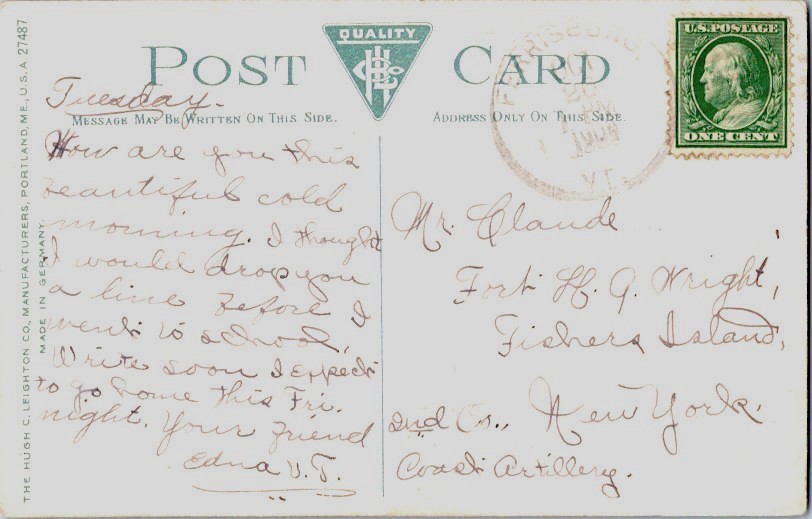 POST CARD
QUALITY
HCL Co
U.S. POSTAGE
ONE CENT
FERRISBURG,
1909
VT.
MESSAGE MAY BE WRITTEN ON THIS SIDE.
ADDRESS ONLY ON THIS SIDE.
THE HUGH C. LEIGHTON CO., MANUFACTURERS, PORTLAND, ME., U.S.A. 27487
MADE IN GERMANY.
Tuesday.
How are you this
beautiful cold
morning. I thought
I would drop you
a line before I
went to school.
Write soon I expect
to go home this Fri.
night. Your friend
Edna V. T.
Mr. Claude
Fort H. G. Wright,
Fishers Island,
New York.
2nd Co.,
Coast Artillery.